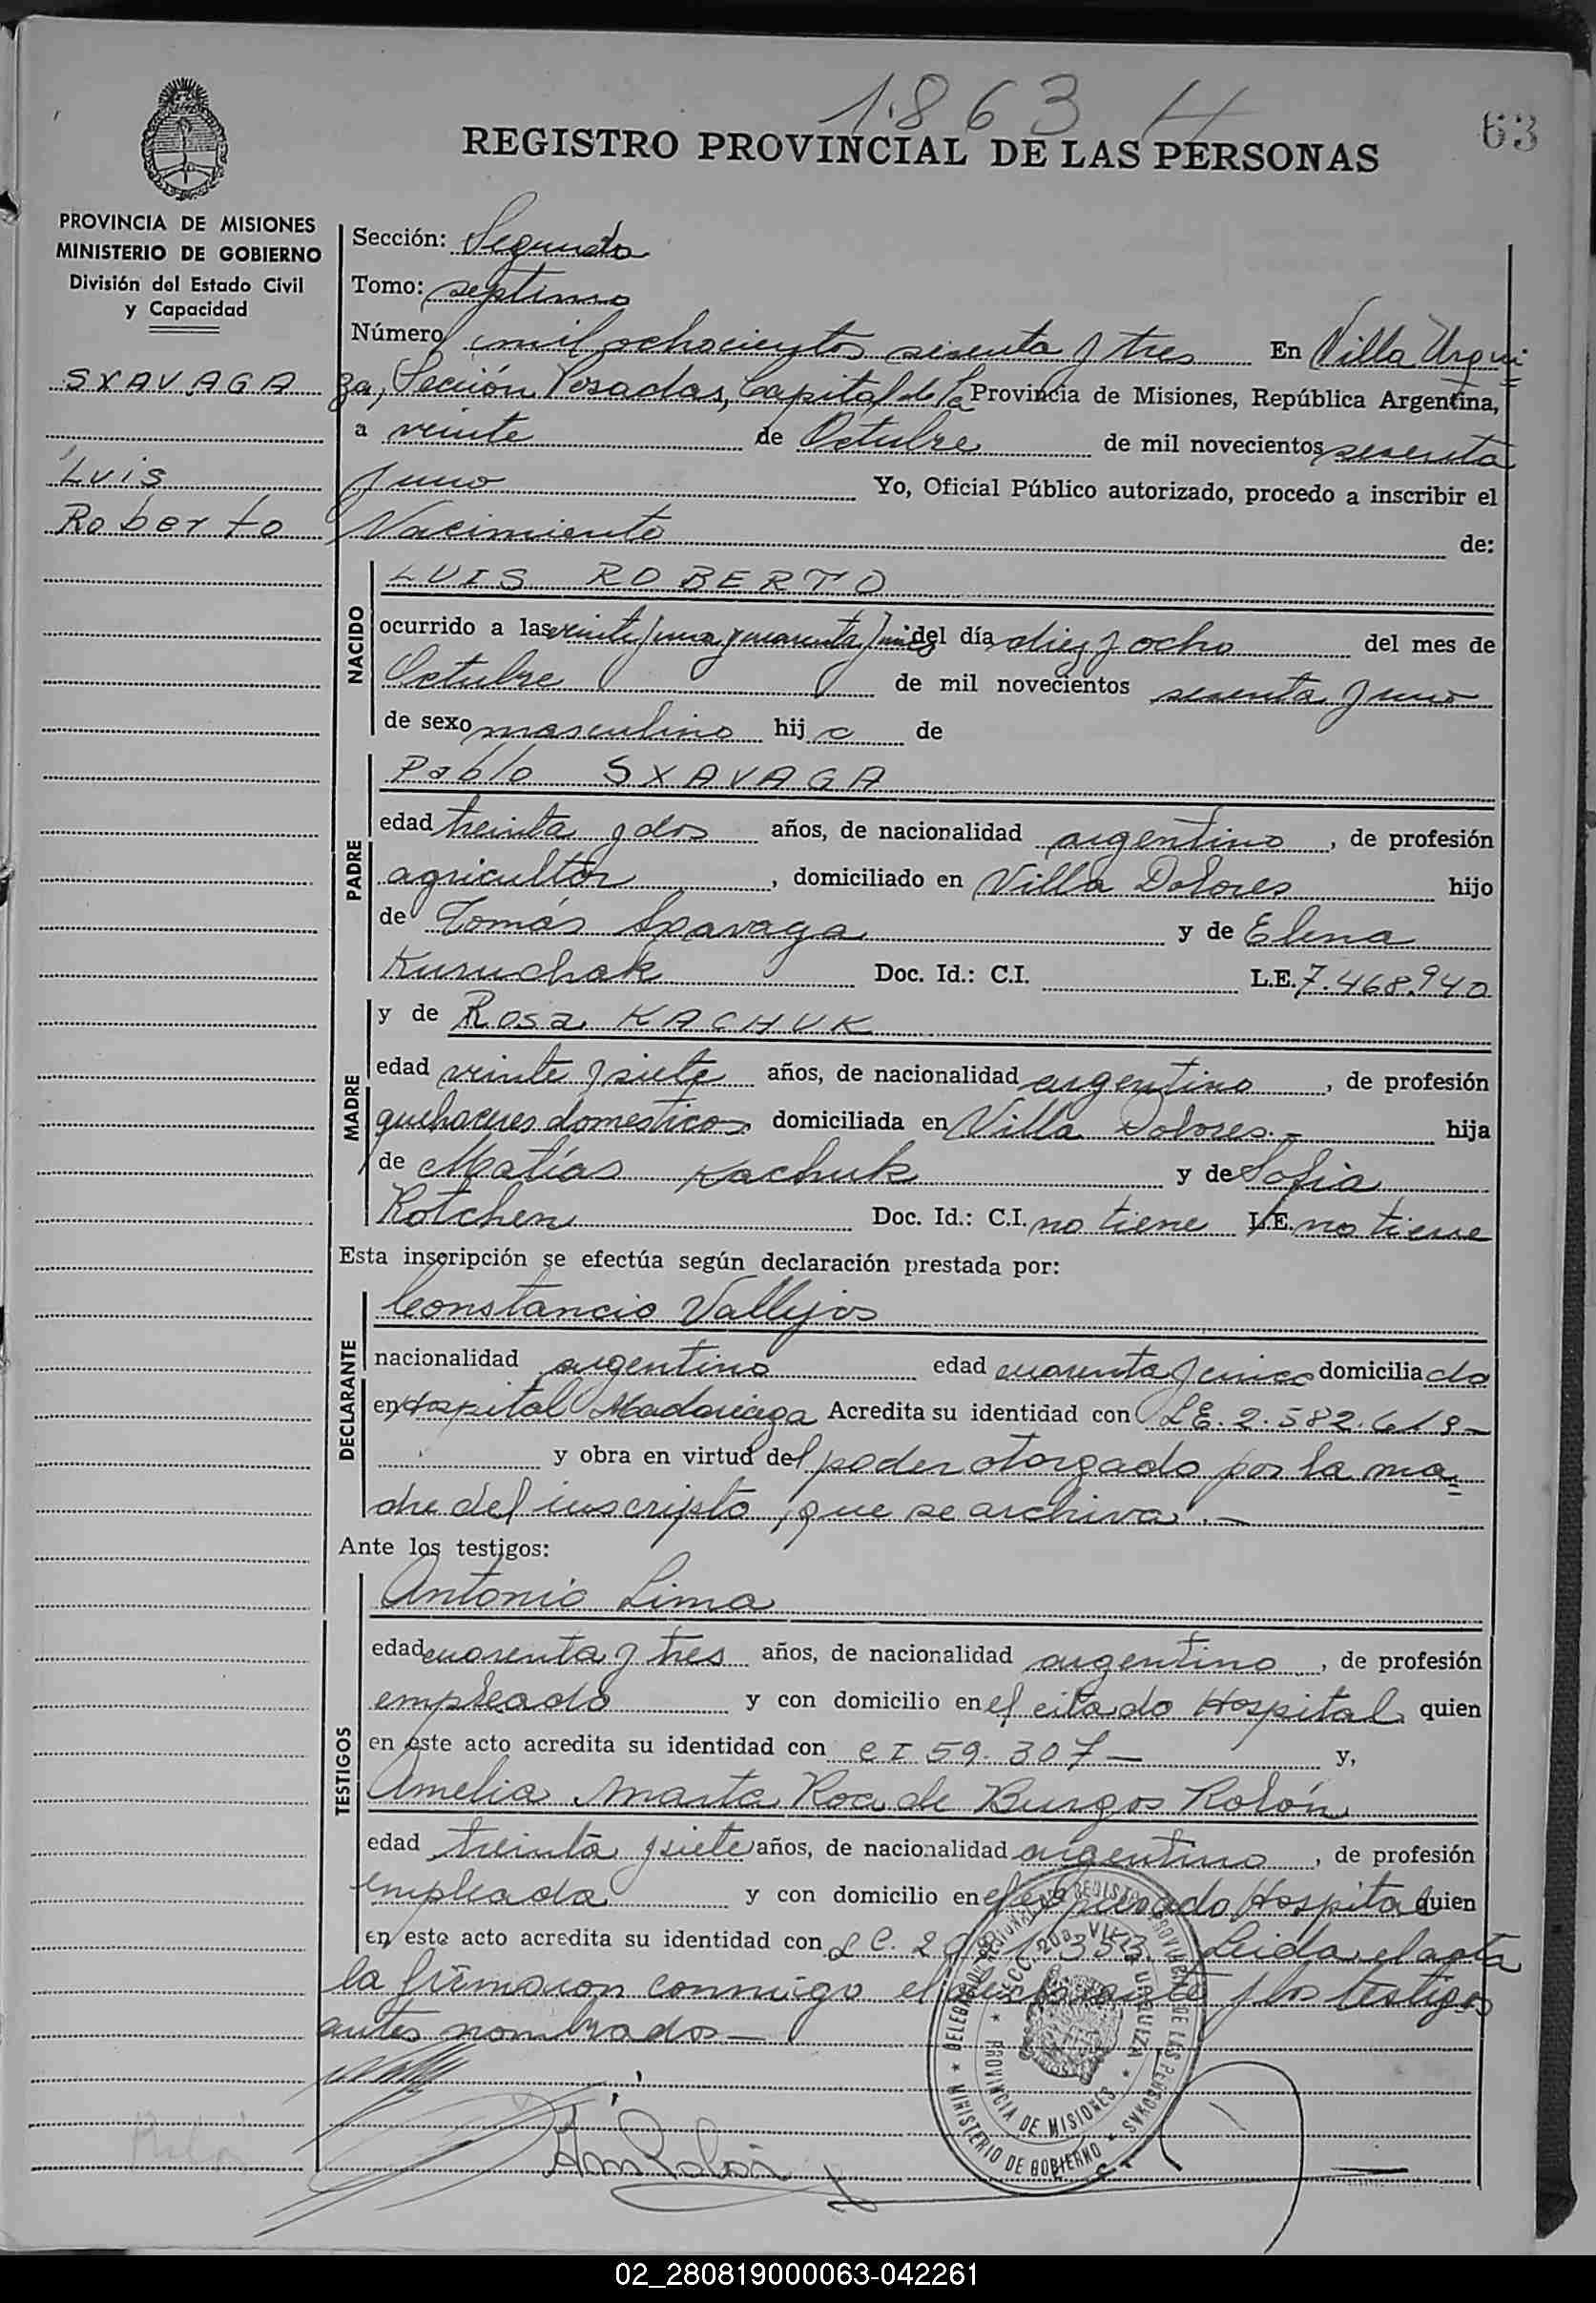 1.863 H
63
REGISTRO PROVINCIAL DE LAS PERSONAS
PROVINCIA DE MISIONES
MINISTERIO DE GOBIERNO
División del Estado Civil
y Capacidad
SXAVAGA
Luis
Roberto
Sección: Segunda
Tomo: septimo
Número mil ochocientos sesenta y tres En Villa Urqui
za, Sección Posadas, Capital de la Provincia de Misiones, República Argentina,
a veinte de Octubre de mil novecientos sesenta
y uno Yo, Oficial Público autorizado, procedo a inscribir el
Nacimiento de:
NACIDO
LUIS ROBERTO
ocurrido a las veinte y una y cuarenta y del día diez y ocho del mes de
Octubre de mil novecientos sesenta y uno
de sexo masculino hijo de
PADRE
Pablo SXAVAGA
edad treinta y dos años, de nacionalidad argentino, de profesión
agricultor, domiciliado en Villa Dolores hijo
de Tomás Sxavaga y de Elena
Kuruchak Doc. Id.: C.I. L.E. 7.468.940
MADRE
y de Rosa KACHUK
edad veinte y siete años, de nacionalidad argentina, de profesión
quehaceres domesticos domiciliada en Villa Dolores.- hija
de Matías Kachuk y de Sofia
Rotchen Doc. Id.: C.I. no tiene L.E. no tiene
Esta inscripción se efectúa según declaración prestada por:
DECLARANTE
Constancio Vallejos
nacionalidad argentino edad cuarenta y cinco domiciliado
en Hospital Madariaga Acredita su identidad con L.E. 2.582.619-
y obra en virtud del poder otorgado por la ma
dre del inscripto, que se archiva.-
Ante los testigos:
TESTIGOS
Antonio Lima
edad cuarenta y tres años, de nacionalidad argentino, de profesión
empleado y con domicilio en el citado Hospital quien
en este acto acredita su identidad con CI 59.307- y,
Amelia Marta Roa de Burgos Rolón
edad treinta y siete años, de nacionalidad argentina, de profesión
empleada y con domicilio en el expresado Hospital quien
en este acto acredita su identidad con L C. 353. Leida el acta
la firmaron conmigo el declarante y los testigos
antes nombrados-
DELEGACION REGIONAL REGISTRO PROVINCIAL DE LAS PERSONAS
MINISTERIO DE GOBIERNO
SECC. 2DA. VILLA URQUIZA
PROVINCIA DE MISIONES
02_280819000063-042261